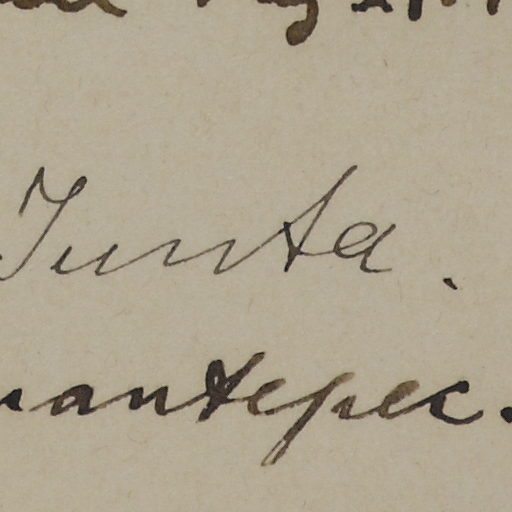 Junta.
uantepec.